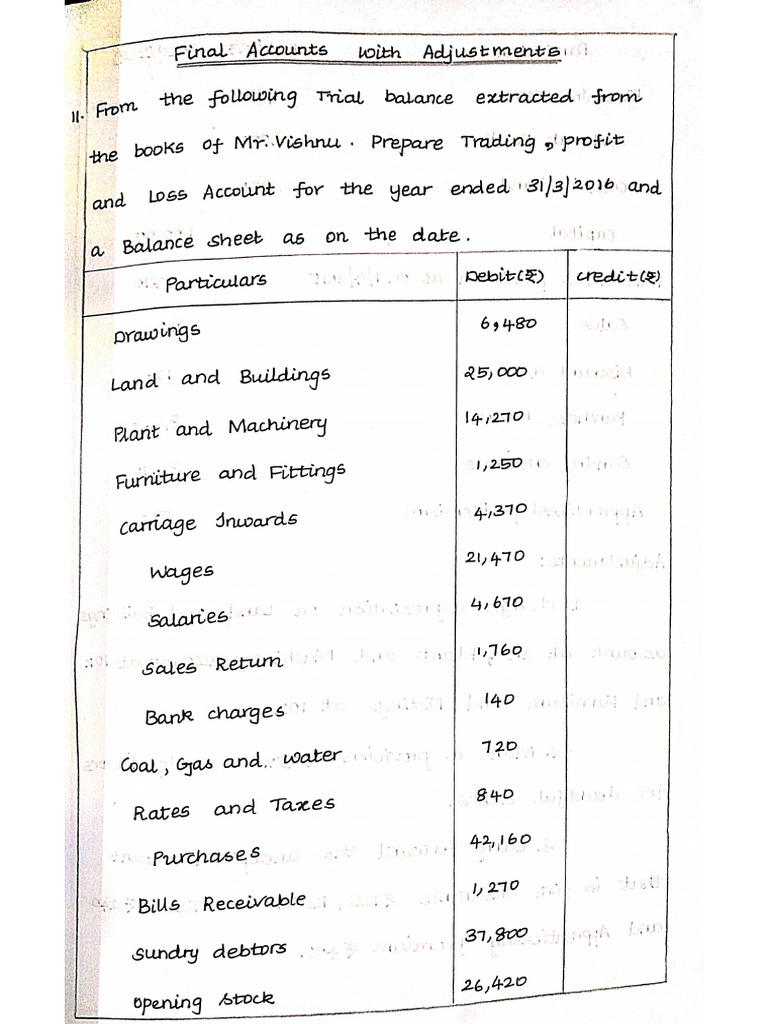 Final Accounts with Adjustments
11. From the following Trial balance extracted from
the books of Mr. Vishnu. Prepare Trading, profit
and Loss Account for the year ended 31/3/2016 and
a Balance sheet as on the date.
Particulars Debit(₹) credit(₹)
Drawings 6,480
Land and Buildings 25,000
Plant and Machinery 14,270
Furniture and Fittings 1,250
Carriage Inwards 4,370
Wages 21,470
Salaries 4,670
Sales Return 1,760
Bank charges 140
Coal, Gas and water 720
Rates and Taxes 840
Purchases 42,160
Bills Receivable 1,270
Sundry debtors 37,800
Opening Stock 26,420